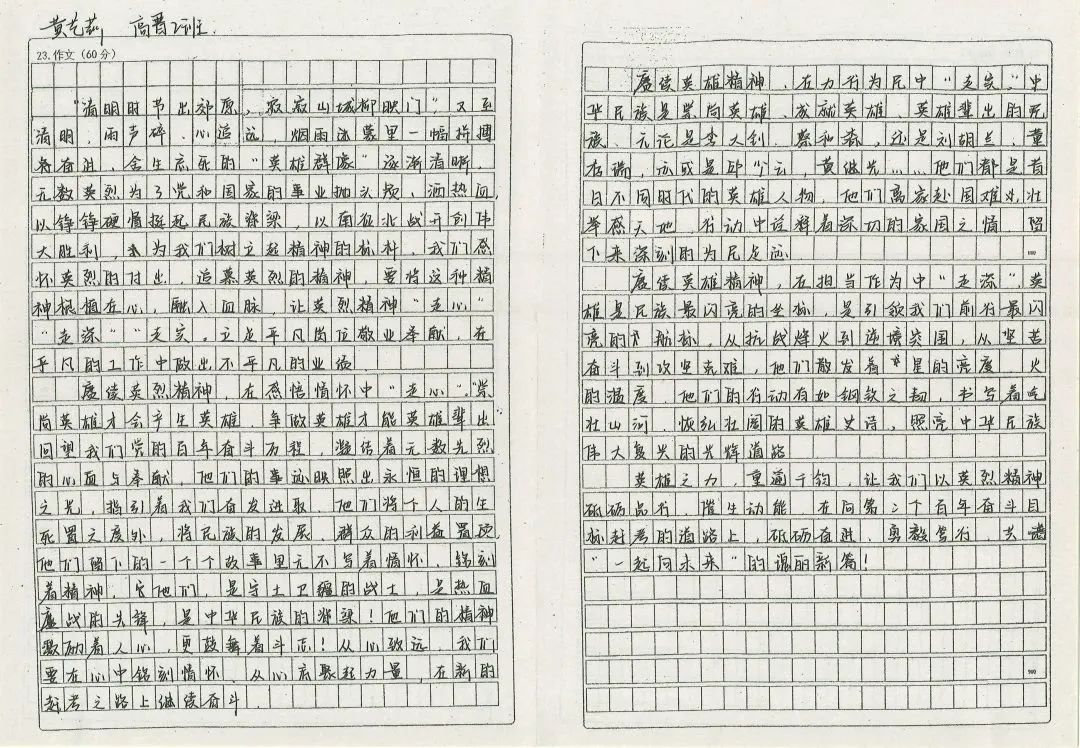 黄艺莉 高晋2班.
23.作文(60分)
"清明时节出郊原,寂寂山城柳映门"又至
清明,雨声碎、心追远,烟雨迷蒙里一幅拼搏
奋进、舍生忘死的"英雄群像"逐渐清晰。
无数英烈为了党和国家的事业抛头颅、洒热血,
以铮铮硬骨挺起民族脊梁,以南征北战开创伟
大胜利,为我们树立起精神的标杆。我们感
怀英烈的付出,追慕英烈的精神,要将这种精
神根植在心,融入血脉,让英烈精神"走心"
"走深""走实。立足平凡岗位敬业奉献,在
平凡的工作中做出不平凡的业绩
赓续英烈精神,在感悟情怀中"走心"."崇
尚英雄才会产生英雄,争做英雄才能英雄辈出
回望我们党的百年奋斗历程,凝结着无数先烈
的心血与奉献,他们的事迹映照出永恒的理想
之光,指引着我们奋发进取。他们将个人的生
死置之度外,将民族的发展、群众的利益置顶
他们留下的一个个故事里无不写着情怀、铭刻
着精神,他们,是守土卫疆的战士,是热血
鏖战的先锋,是中华民族的脊梁!他们的精神
激励着人心,更鼓舞着斗志!从心致远,我们
要在心中铭刻情怀,从心底聚起力量,在新的
赶考之路上继续奋斗.
赓续英雄精神,在力行为民中"走实."中
华民族是崇尚英雄、成就英雄、英雄辈出的民
族、无论是李大钊、蔡和森,还是刘胡兰、董
存瑞,亦或是邱少云,黄继光……他们都是昔
日不同时代的英雄人物,他们离家赴国难,壮
举感天地,行动中诠释着深切的家国之情,留
下来深刻的为民足迹.
赓续英雄精神,在担当作为中"走深".英
雄是民族最闪亮的坐标,是引领我们前行最闪
亮的航标,从抗战烽火到逆境突围,从坚苦
奋斗到攻坚克难,他们散发着星的亮度、火
的温度,他们的行动有如钢铁之韧,书写着气
壮山河、恢弘壮阔的英雄史诗,照亮中华民族
伟大复兴的光辉道路
英雄之力,重逾千钧,让我们以英烈精神
砥砺品行、催生动能,在向第二个百年奋斗目
标赶考的道路上,砥砺奋进、勇毅笃行,共谱
"一起向未来"的瑰丽新篇!